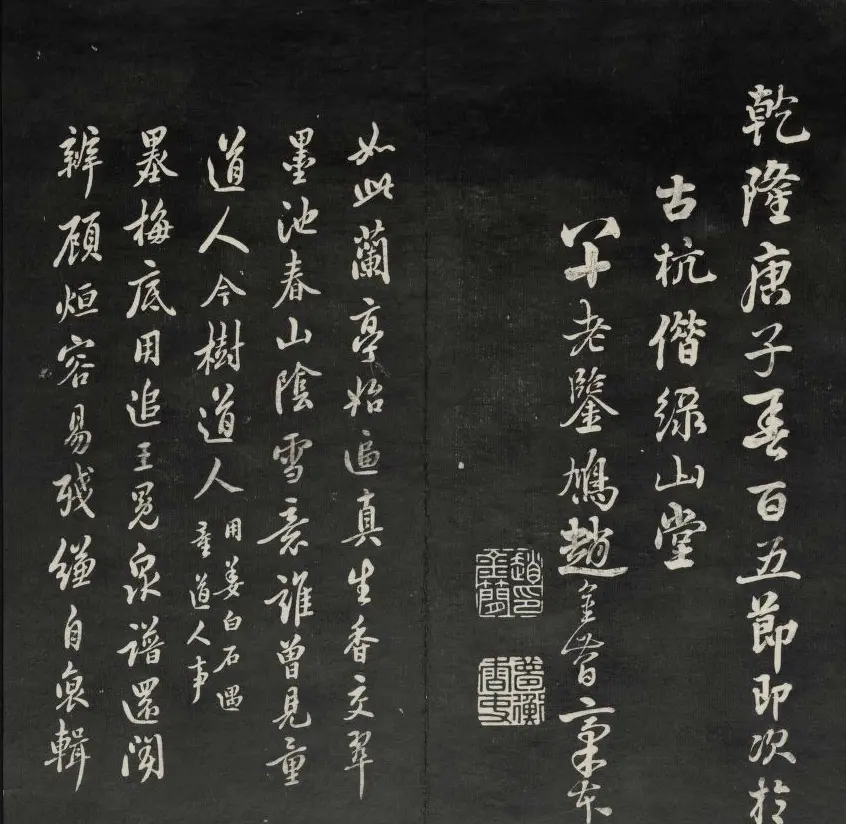 乾隆庚子春百五節即次於
古杭借綠山堂
八十老鑒鳩趙金簡
如此蘭亭始逼真生香交翠
墨池春山陰雪意誰曾見童
道人今樹道人用姜白石遇
童道人事
墨梅底用追王冕泉譜還闕
辨顧烜容易殘縑自裒輯